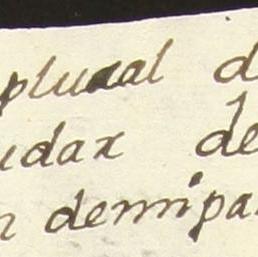 plural d
udax de
n demipa